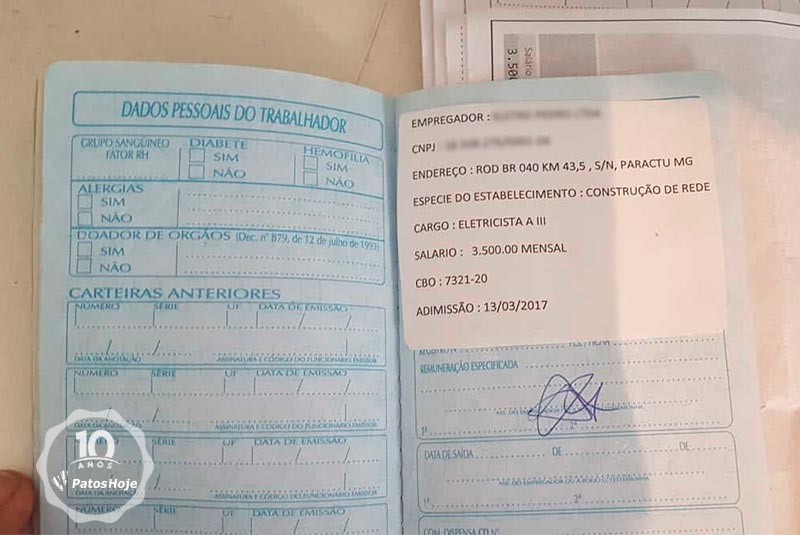 DADOS PESSOAIS DO TRABALHADOR
GRUPO SANGUINEO
FATOR RH
DIABETE
SIM
NÃO
HEMOFILIA
SIM
NÃO
ALERGIAS
SIM
NÃO
DOADOR DE ORGÃOS (Dec. n° 879, de 12 de julho de 1993)
SIM
NÃO
CARTEIRAS ANTERIORES
NUMERO SÉRIE UF DATA DE EMISSÃO
DATA DA ANOTAÇÃO ASSINATURA E CÓDIGO DO FUNCIONÁRIO EMISSOR
NUMERO SÉRIE UF DATA DE EMISSÃO
DATA DA ANOTAÇÃO ASSINATURA E CÓDIGO DO FUNCIONÁRIO EMISSOR
NUMERO SÉRIE UF DATA DE EMISSÃO
DATA DA ANOTAÇÃO ASSINATURA E CÓDIGO DO FUNCIONÁRIO EMISSOR
UF DATA DE EMISSÃO
10
ANOS
PatosHoje
Salário
3.50
EMPREGADOR :
CNPJ
ENDEREÇO : ROD BR 040 KM 43,5 , S/N, PARACTU MG
ESPECIE DO ESTABELECIMENTO : CONSTRUÇÃO DE REDE
CARGO : ELETRICISTA A III
SALARIO : 3.500.00 MENSAL
CBO : 7321-20
ADIMISSÃO : 13/03/2017
REGISTRO N° FLS / FICHA
REMUNERAÇÃO ESPECIFICADA
1ª 2ª
DATA DE SAÍDA DE DE
ASS. DO EMPREGADOR OU A ROGO C/TESTEMUNHA
1ª 2ª
COM. DISPENSA CD N°